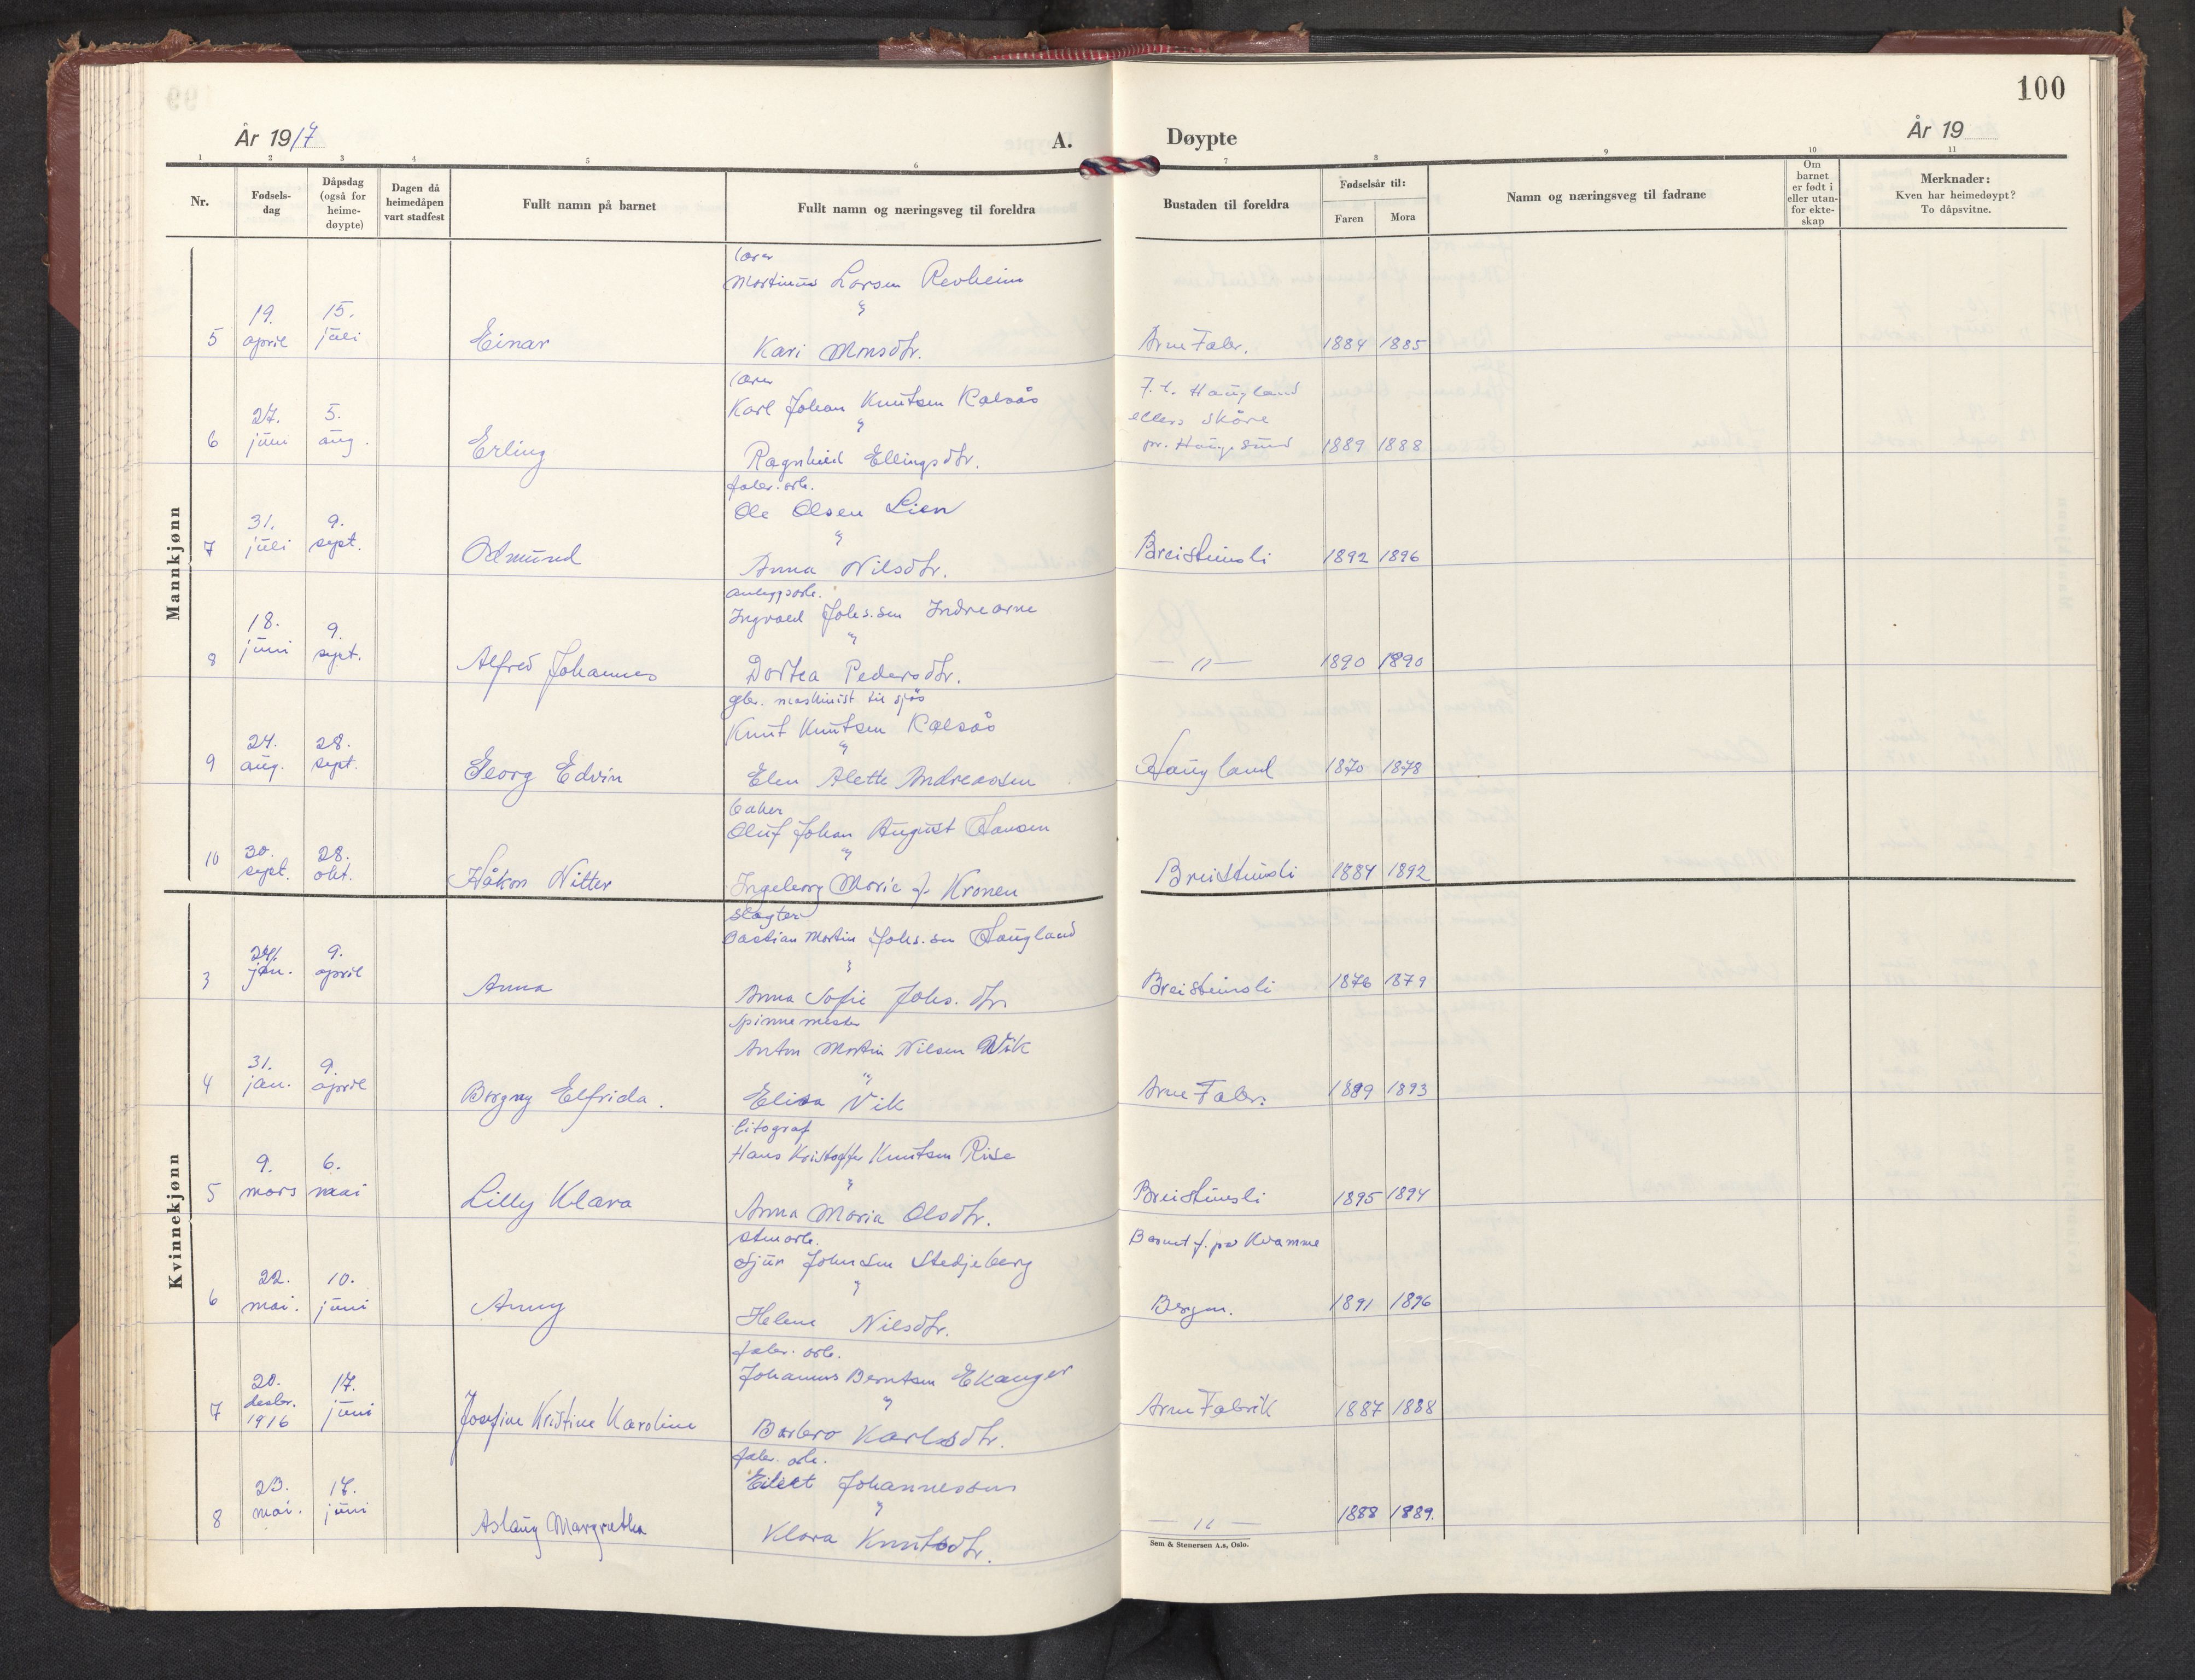 100
År 1917
A.
Døypte
År 19
1 2 3 4 5 6 7 8 9 10 11
Nr.
Fødsels-
dag
Dåpsdag
(også for
heime-
døypte)
Dagen då
heimedåpen
vart stadfest
Fullt namn på barnet
Fullt namn og næringsveg til foreldra
Bustaden til foreldra
Fødselsår til:
Faren Mora
Namn og næringsveg til fadrane
Om
barnet
er født i
eller utan-
for ekte-
skap
Merknader:
Kven har heimedøypt?
To dåpsvitne.
Mannkjønn
lærer
Martinus Larsen Revheim
"
5 19. april 15. juli Einar Kari Monsdtr. Arne Fabr. 1884 1885
lærer
Karl Johan Knutsen Kalsås
"
F. t. Haugland
ellers Skåre
6 27. juni 5. aug. Erling Ragnhild Ellingsdtr. pr. Haugesund 1889 1888
fabr. arb.
Ole Olsen Lien
"
7 31. juli 9. sept. Odmund Anna Nilsdtr. Breistunsli 1892 1896
anleggsarb.
Ingvald Johs.sen Indrearne
"
8 18. juni 9. sept. Alfred Johannes Dortea Pedersdtr. — " — 1890 1890
gbr. maskinist til sjøs
Knut Knutsen Kalsås
"
9 24. aug. 28. sept. Georg Edvin Elen Alette Andreassen Haugland 1870 1878
baker
Oluf Johan August Hansen
"
10 30. sept. 28. okt. Håkon Nitter Ingeborg Marie f. Kronen Breistunsli 1884 1892
Kvinnekjønn
slagter
Bastian Martin Johs.sen Haugland
"
3 24. jan. 9. april Anna Anna Sofie Johs. dtr. Breistunsli 1876 1879
spinnemester
Anton Martin Nilsen Vik
"
4 31. jan. 9. april Borgny Elfrida. Elisa Vik Arne Fabr. 1889 1893
litograf
Hans Kristoffer Knutsen Rise
"
5 9. mars 6. mai Lilly Klara Anna Maria Olsdtr. Breistunsli 1895 1894
stenarb.
Sjur Johnsen Stedjeberg
"
Barnet f. på Kvamme
6 22. mai. 10. juni Anny Helene Nilsdtr. Bergen. 1891 1896
fabr. arb.
Johannes Berntsen Ekanger
"
7 20. desbr. 1916 17. juni Josefine Kristine Karoline Barbro Karlsdtr. Arne Fabrik 1887 1888
fabr. arb.
Eilert Johannessen
"
8 23. mai. 17. juni Aslaug Margretha Klara Knutsdtr. — " — 1888 1889.
Sem & Stenersen A.s, Oslo.